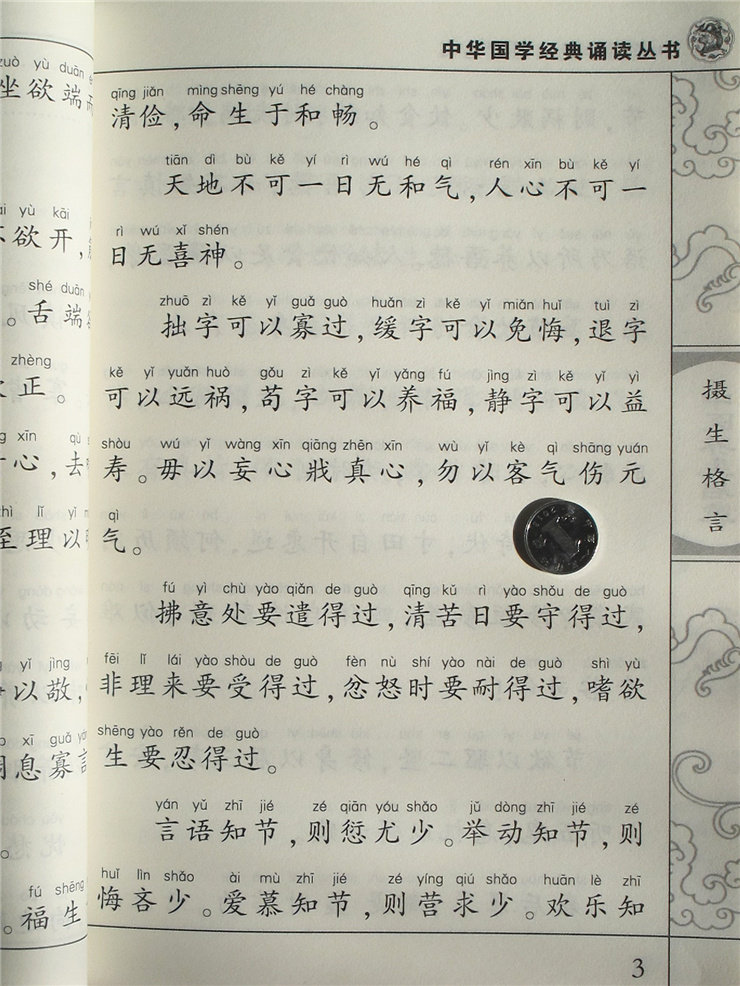 zuò yù duān
坐欲端
yù kāi
欲开,
shé duān
。舌端
zhèng
正。
xīn
心,去
lǐ
至理以
yì jìng
以敬,
xī guǎ
息寡
。
fú shēng
。福生
中华国学经典诵读丛书
qīng jiǎn mìng shēng yú hé chàng
清俭,命生于和畅。
tiān dì bù kě yí rì wú hé qì rén xīn bù kě yí
天地不可一日无和气,人心不可一
rì wú xǐ shén
日无喜神。
zhuō zì kě yǐ guǎ guò huǎn zì kě yǐ miǎn huǐ tuì zì
拙字可以寡过,缓字可以免悔,退字
kě yǐ yuǎn huò gǒu zì kě yǐ yǎng fú jìng zì kě yǐ yì
可以远祸,苟字可以养福,静字可以益
shòu wú yǐ wàng xīn qiāng zhēn xīn wù yǐ kè qì shāng yuán
寿。毋以妄心戕真心,勿以客气伤元
qì
气。
fú yì chù yào qiǎn de guò qīng kǔ rì yào shǒu de guò
拂意处要遣得过,清苦日要守得过,
fēi lǐ lái yào shòu de guò fèn nù shí yào nài de guò shì yù
非理来要受得过,忿怒时要耐得过,嗜欲
shēng yào rěn de guò
生要忍得过。
yán yǔ zhī jié zé qiān yóu shǎo jǔ dòng zhī jié zé
言语知节,则愆尤少。举动知节,则
huǐ lìn shǎo ài mù zhī jié zé yíng qiú shǎo huān lè zhī
悔吝少。爱慕知节,则营求少。欢乐知
摄生格言
3